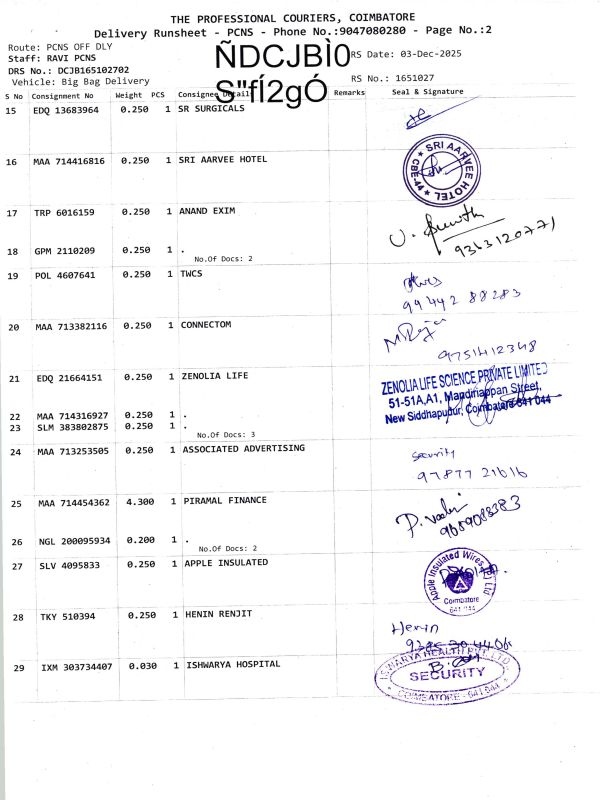 THE PROFESSIONAL COURIERS, COIMBATORE
Delivery Runsheet - PCNS - Phone No.:9047080280 - Page No.:2
Route: PCNS OFF DLY
Staff: RAVI PCNS
DRS No.: DCJB165102702
Vehicle: Big Bag Delivery
ÑDCJBÌ0
S"fÍ2gÓ
RS Date: 03-Dec-2025
RS No.: 1651027
S No Consignment No Weight PCS Consignee Details Remarks Seal & Signature
15 EDQ 13683964 0.250 1 SR SURGICALS
16 MAA 714416816 0.250 1 SRI AARVEE HOTEL
SRI AARVEE HOTEL
CBE-44
17 TRP 6016159 0.250 1 ANAND EXIM
9363120771
18 GPM 2110209 0.250 1 .
No.Of Docs: 2
19 POL 4607641 0.250 1 TWCS
99442 88283
20 MAA 713382116 0.250 1 CONNECTOM
9751412348
21 EDQ 21664151 0.250 1 ZENOLIA LIFE
ZENOLIA LIFE SCIENCE PRIVATE LIMITED
51-51A,A1, Mandhiappan Street,
New Siddhapudur, Coimbatore-641 044
22 MAA 714316927 0.250 1 .
23 SLM 383802875 0.250 1 .
No.Of Docs: 3
24 MAA 713253505 0.250 1 ASSOCIATED ADVERTISING
Security
97877 21616
25 MAA 714454362 4.300 1 PIRAMAL FINANCE
9689088383
26 NGL 200095934 0.200 1 .
No.Of Docs: 2
27 SLV 4095833 0.250 1 APPLE INSULATED
Apple Insulated Wires (P) Ltd
Coimbatore
641 044
28 TKY 510394 0.250 1 HENIN RENJIT
Henin
29 IXM 303734407 0.030 1 ISHWARYA HOSPITAL
ISWARYA HEALTH PVT. LTD.
SECURITY
COIMBATORE - 641 044